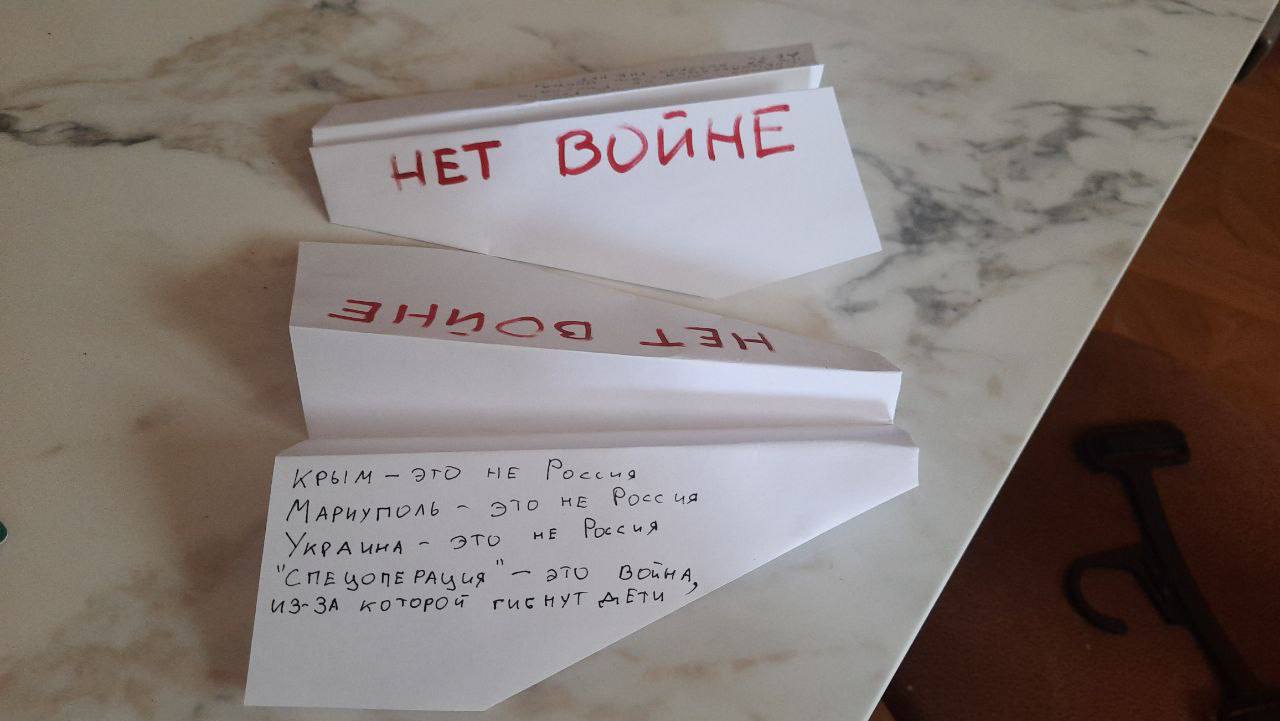 НЕТ ВОЙНЕ
НЕТ ВОЙНЕ
КРЫМ - ЭТО НЕ РОССИЯ
МАРИУПОЛЬ - ЭТО НЕ РОССИЯ
УКРАИНА - ЭТО НЕ РОССИЯ
"СПЕЦОПЕРАЦИЯ" - ЭТО ВОЙНА,
ИЗ-ЗА КОТОРОЙ ГИБНУТ ДЕТИ